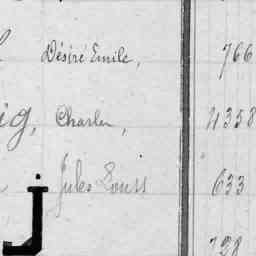 Désiré Emile, 766
ig, Charles, 4358
Jules Louis 633
J
728